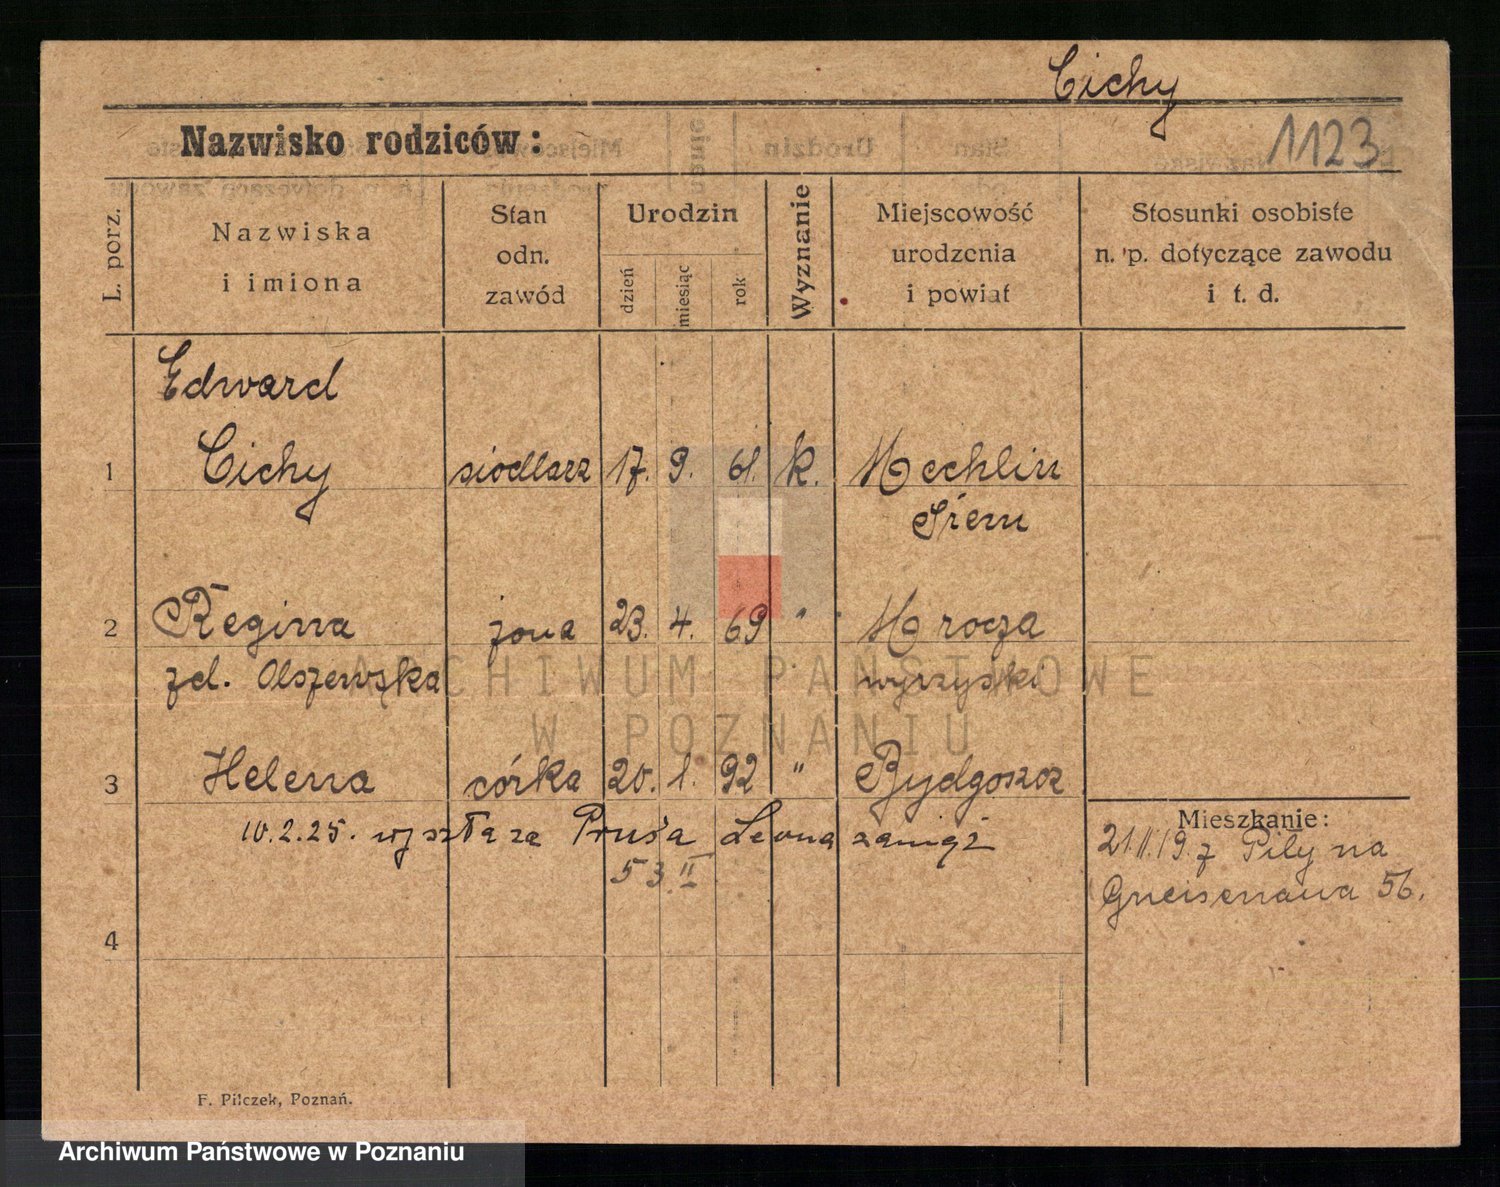 Cichy
Nazwisko rodziców:
1123
L. porz.
Nazwiska
i imiona
Stan
odn.
zawód
Urodzin
dzień
miesiąc
rok
Wyznanie
Miejscowość
urodzenia
i powiat
Stosunki osobiste
n. p. dotyczące zawodu
i t. d.
Edward
1 Cichy siodlarz 17. 9. 61. k. Mechlin
Śrem
2 Regina żona 23. 4. 69 " Mrocza
zd. Olszewska wyrzyski
ARCHIWUM PAŃSTWOWE
W POZNANIU
3 Helena córka 20. 1. 92 " Bydgoszcz
10.2.25. wyszła za Prusa Leona zamąż
53 II
Mieszkanie:
21.II.19. z Piły na
Gneisenaua 56.
4
F. Pilczek, Poznań.
Archiwum Państwowe w Poznaniu